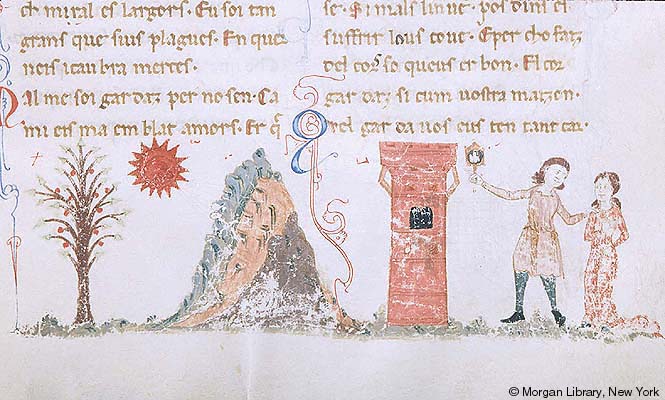 ch miral es largers. Eu soi tan
grans que sius plagues. En que
neis i caubra merces.
Mal me soi gardaz per no sen. Ca
mi eis ma emblat amors. Er q̄
se. Si mals lin ve. pos dins el
suffrir lous cove. Eper cho faz
del cors so queus er bon. El cor
gardaz si cum vostra maizon.
Qel garda vos eus ten tant car.
© Morgan Library, New York